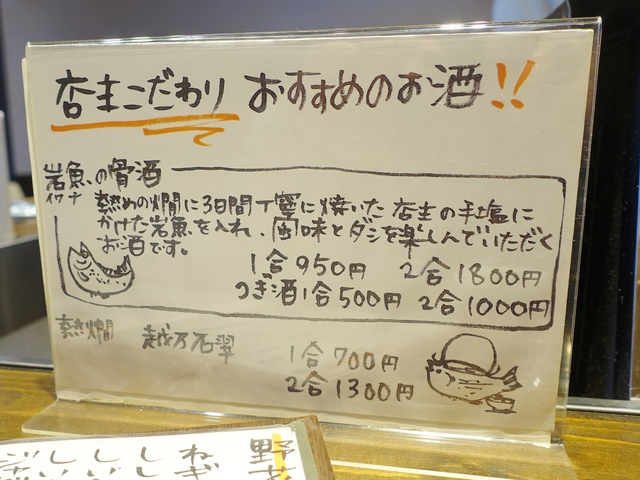 店主こだわり おすすめのお酒!!
岩魚の骨酒
イワナ
熱めの燗に3日間丁寧に焼いた 店主の手塩に
かけた岩魚を入れ、風味とダシを楽しんでいただく
お酒です。
1合950円 2合1800円
つぎ酒1合500円 2合1000円
熱燗
1合700円
2合1300円
野
ねぎ